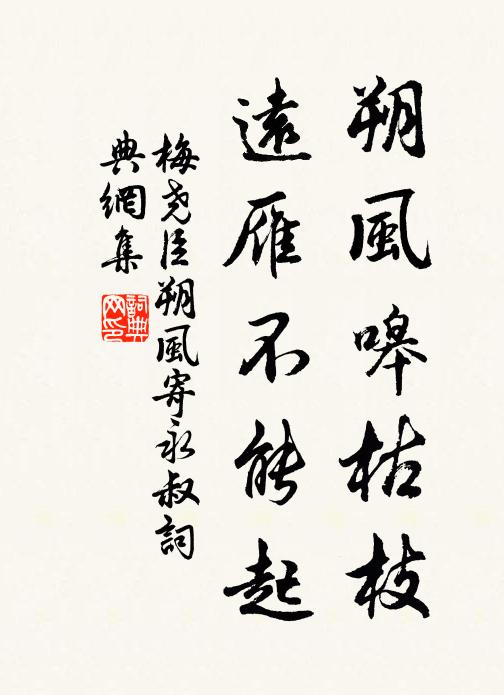 朔風嘷枯枝
遠雁不能起
梅尧臣朔風寄永叔詞
典網集
詞典
网印